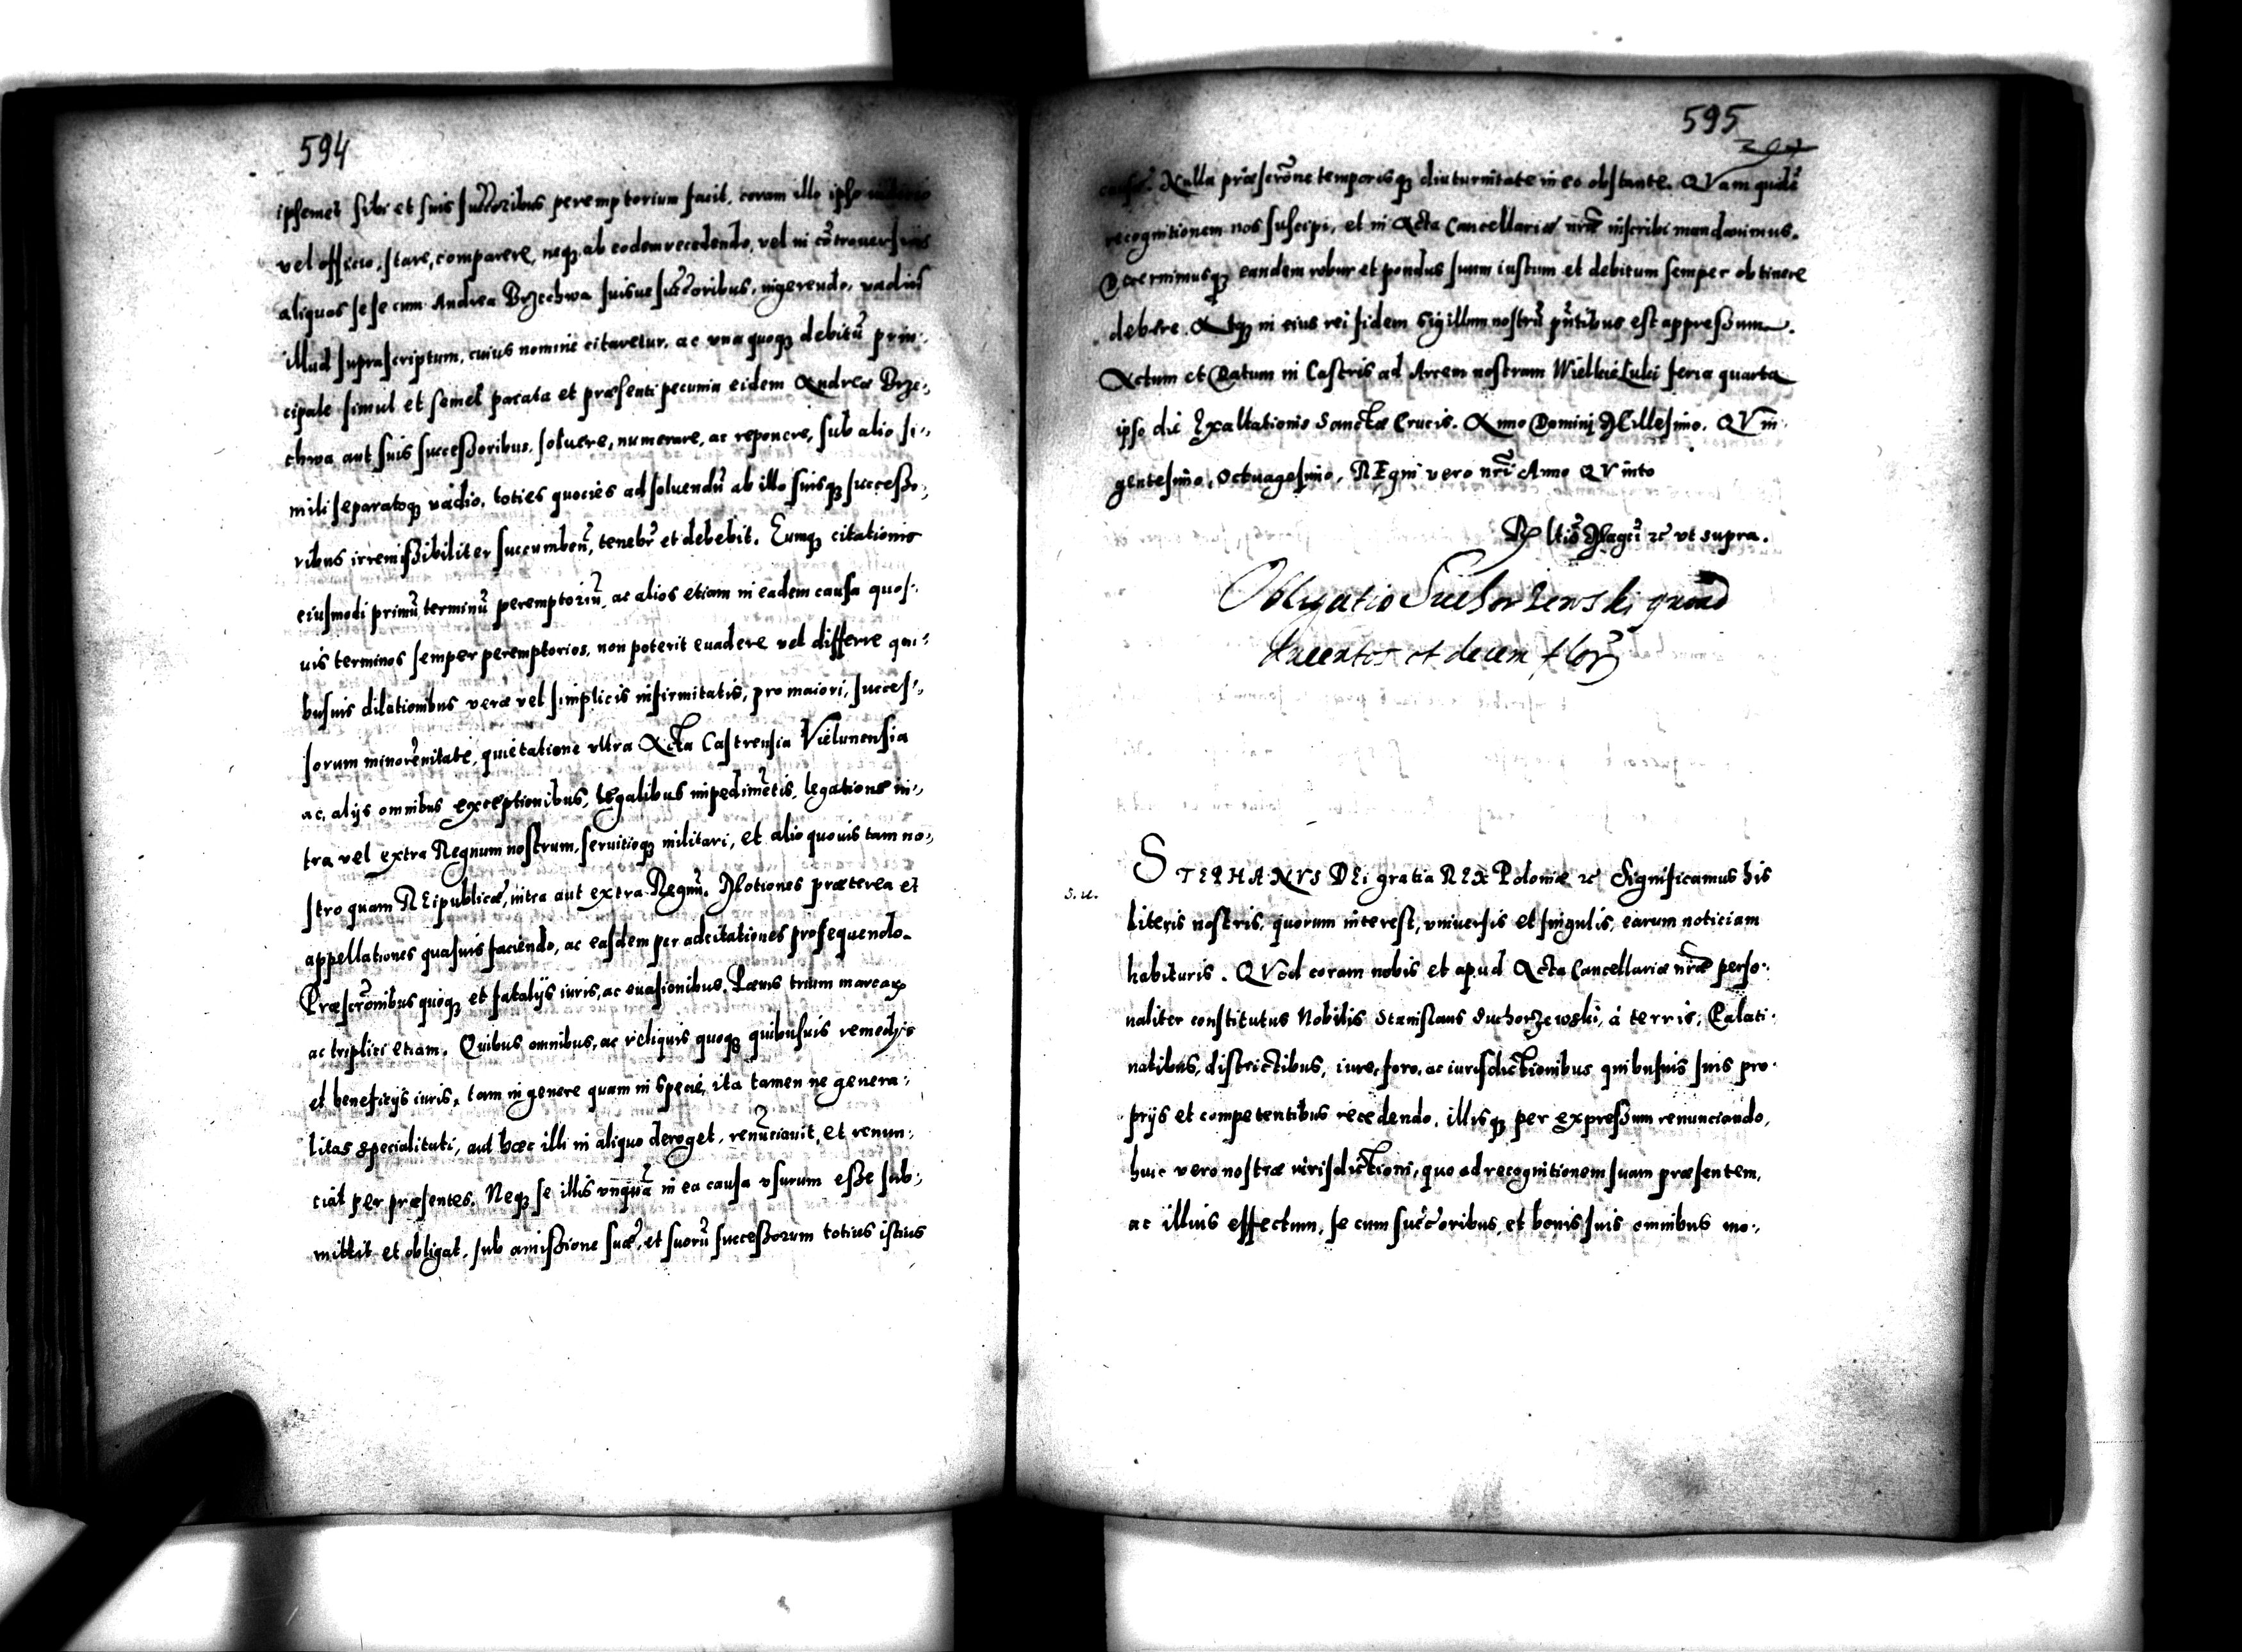 594
ipsemet sibi et suis succ̃oribus peremptorium facit, coram illo ipso
vel officio, stare, comparere, neqȝ ab eodem recedendo, vel in cõtrouersias
aliquas sese cum Andrea Brzechwa suisue succ̃oribus, ingerendo, vadiũ
illud suprascriptum, cuius nomine citaretur, ac vna quoqȝ debitũ prin-,
cipale simul et semel parata et præsenti pecunia eidem Andreæ Brze-,
chwa aut suis successoribus, soluere, numerare, ac reponere, sub alio si-,
mili separatoqȝ vadio, toties quoties ad soluendũ ab illo suisqȝ successo-,
ribus irremissibiliter succumbeñ, tenebr̃ et debebit. Eumqȝ citationis
eiusmodi primũ terminũ peremptoriũ, ac alios etiam in eadem causa quos-,
uis terminos semper peremptorios, non poterit euadere vel differre qui-,
busuis dilationibus veræ vel simplicis infirmitatis, pro maiori, succes-,
sorum minorẽnitate, quietatione vltra Acta Castrensia Vielunensia
ac, alijs omnibus exceptionibus, legalibus impedimẽtis, legatione in-,
tra vel extra Regnum nostrum, seruitioqȝ militari, et alio quouis tam no-,
stro quam REipublicæ, intra aut extra Regnũ. Motiones præterea et
appellationes quasuis faciendo, ac easdem per adcitationes prosequendo.
Præscrõnibus quoqȝ et fatalijs iuris, ac euasionibus. Pœnis trium marcaꝝ
ac triplici etiam. Quibus omnibus, ac reliquis quoqȝ quibusuis remedijs
et beneficijs iuris, tam in genere quam in specie, ita tamen ne genera-,
litas specialitati, aut hæc illi in aliquo deroget, renũciauit, et renun-,
ciat per præsentes. Neqȝ se illis vnquã in ea causa vsurum esse sub-,
mittit et obligat, sub amissione suæ, et suorũ successorum totius istius
595
causæ. Nulla præscrõne temporisqȝ diuturnitate in eo obstante. QVam quidẽ
recognitionem nos suscipi, et in Acta Cancellariæ nr̃æ inscribi mandauimus.
Decernimusqȝ eandem robur et pondus suum iustum et debitum semper obtinere
debere. Atqȝ in eius rei fidem Sigillum nostrũ pñtibus est appressum.
Actum et Datum in Castris ad Arcem nostram Wielkie Luki feria quarta
ipso die Exaltationis Sanctæ Crucis. Anno Domini Millesimo. QVin-
gentesimo, Octuagesimo, REgni vero nr̃i Anno QVinto
ltis̃ Magcĩ ꝛc̃ vt supra.
Obligatio Suchorzewski quoad
ducentos et decem flor̃
S. u.
STEPHANVS DEi gratia REX Poloniæ ꝛc̃ Significamus his
literis nostris, quorum interest, vniuersis et singulis, earum noticiam
habituris. QVod coram nobis et apud Acta Cancellariæ nr̃æ perso-,
naliter constitutus Nobilis Stanislaus Suchorzewski, à terris, Palati-
natibus, districtibus, iure, foro, ac iurisdictionibus quibusuis suis pro-
prijs et competentibus recedendo, illisqȝ per expressum renunciando,
huic vero nostræ iurisdictioni, quo ad recognitionem suam præsentem,
ac illius effectum, se cum succ̃oribus, et bonis suis omnibus mo-,